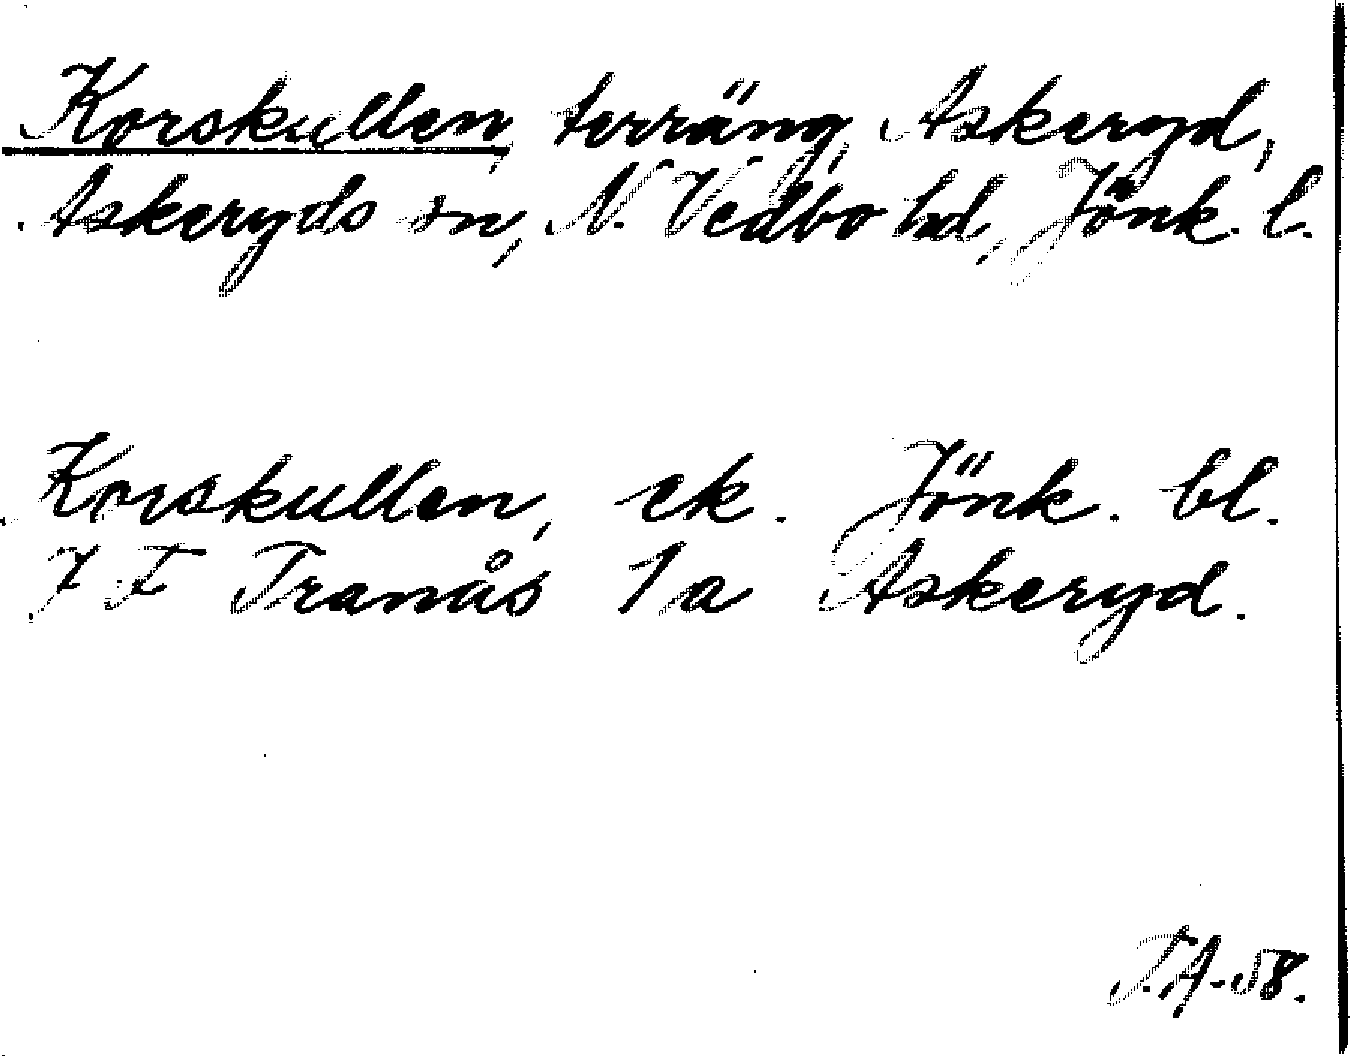 Korskullen, terräng, Askeryd,
Askeryds sn, N. Vedbo hd, Jönk. l.
Korskullen, ek. Jönk. bl.
7 F Tranås 1a Askeryd.
T.A-58.